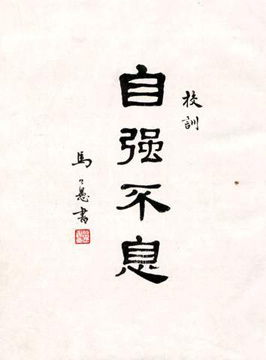 校訓
自强不息
馬
書